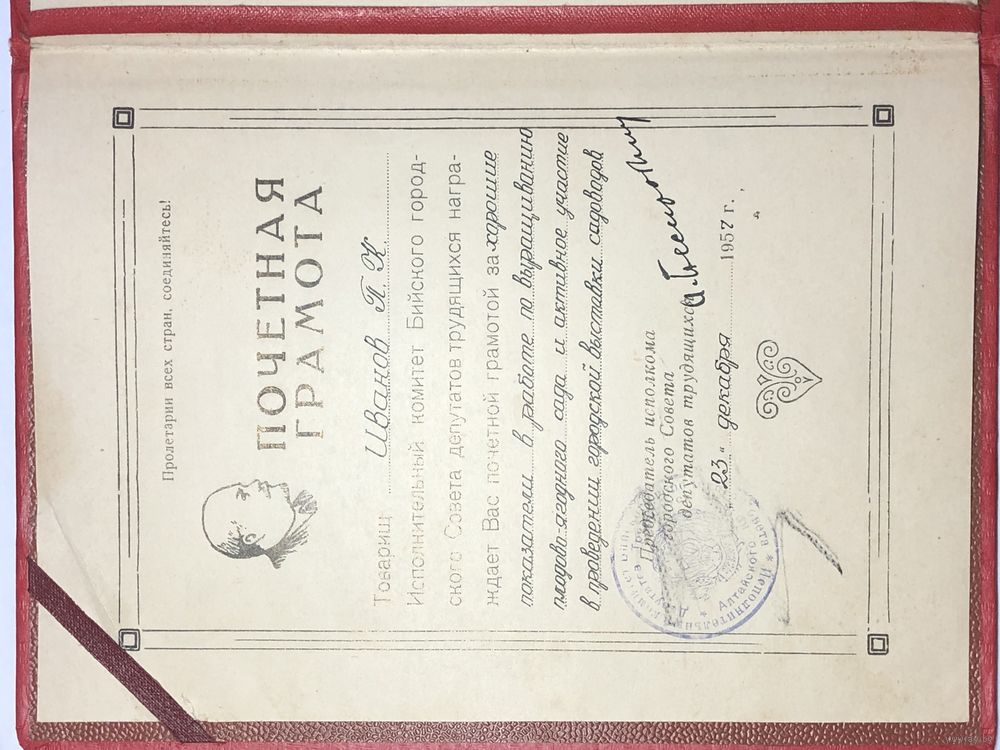 Пролетарии всех стран, соединяйтесь!
ПОЧЕТНАЯ
ГРАМОТА
Товарищ Иванов П. К
Исполнительный комитет Бийского город-
ского Совета депутатов трудящихся награ-
ждает Вас почетной грамотой за хорошие
показатели в работе по выращиванию
плодово-ягодного сада и активное участие
в проведении городской выставки садоводов
Председатель исполкома
городского Совета
депутатов трудящихся
„23“ декабря 1957 г.
Исполнительный
Алтайского